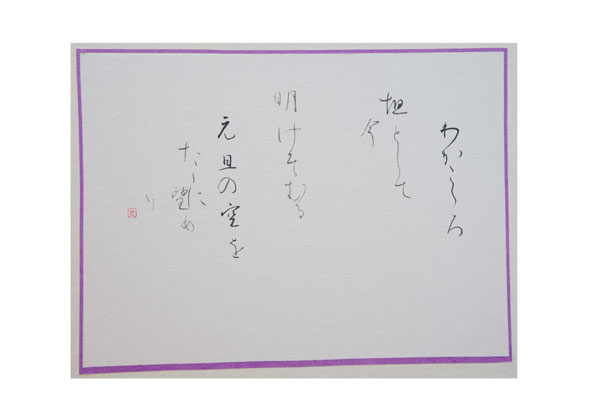 わがこころ
坦として
今
明けそむる
元旦の空を
ただに
望め
り